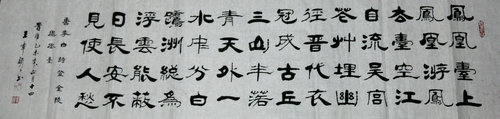 鳳凰臺上
鳳凰游鳳
去臺空江
自流吴宫
花艸埋幽
徑晉代衣
冠成古丘
三山半落
青天外一
水中分白
鷺洲總為
浮雲能蔽
日長安不
見使人愁
李白詩登金陵
鳳凰臺
乙未